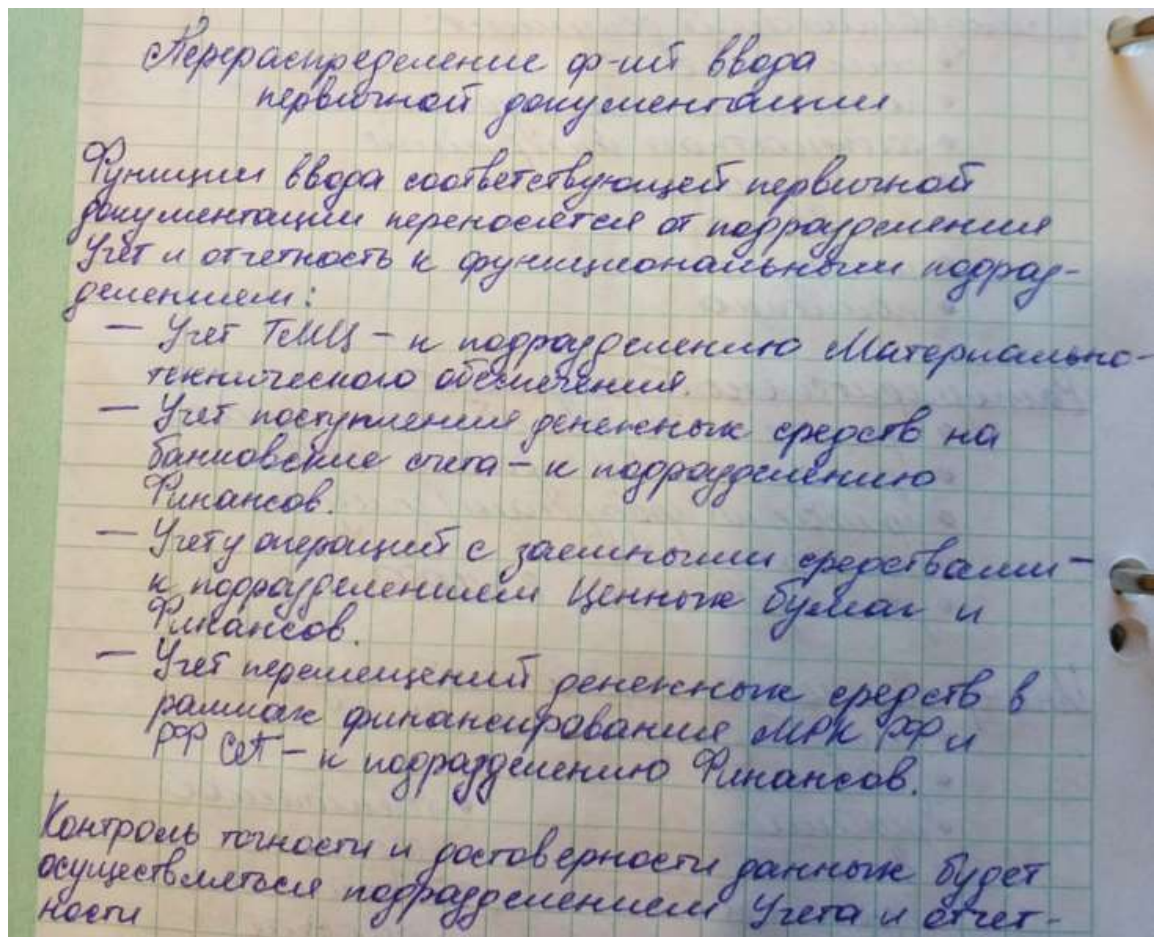 Перераспределение ф-ий ввода
первичной документации
Функции ввода соответствующей первичной
документации переносятся от подразделения
Учет и отчетность к функциональным подраз-
делениям:
— Учет ТМЦ – к подразделению Материально-
технического обеспечения.
— Учет поступления денежных средств на
банковские счета – к подразделению
Финансов.
— Учету операций с заемными средствами –
к подразделениям Ценных бумаг и
Финансов.
— Учет перемещений денежных средств в
рамках финансирования МРК РФ и
РФ – к подразделению Финансов.
Контроль точности и достоверности данных будет
осуществляться подразделением Учета и отчет-
ности